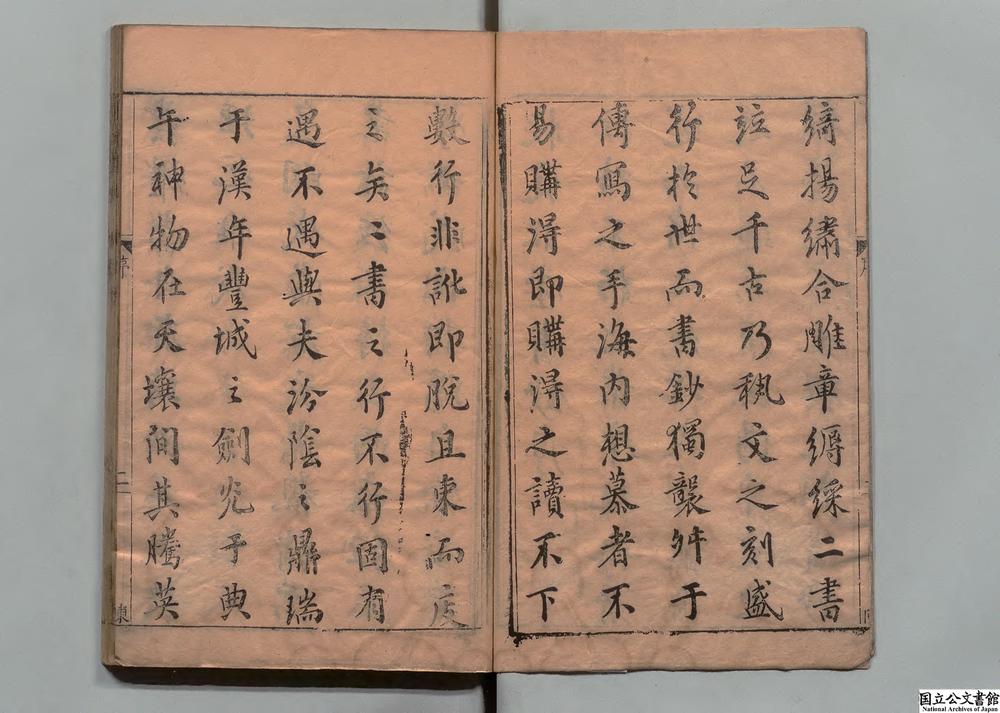 綺揚繡合雕章縟綵二書
竝足千古乃秇文之刻盛
行於世而書鈔獨襲舛于
傳寫之手海内想慕者不
易購淂即購淂之讀不下
數行非訛即脫且束而庋
之矣二書之行不行固有
遇不遇與夫汾陰之鼎瑞
于漢年豐城之劍炗于典
午神物在天壤間其騰英
序
二
国立公文書館
National Archives of Japan